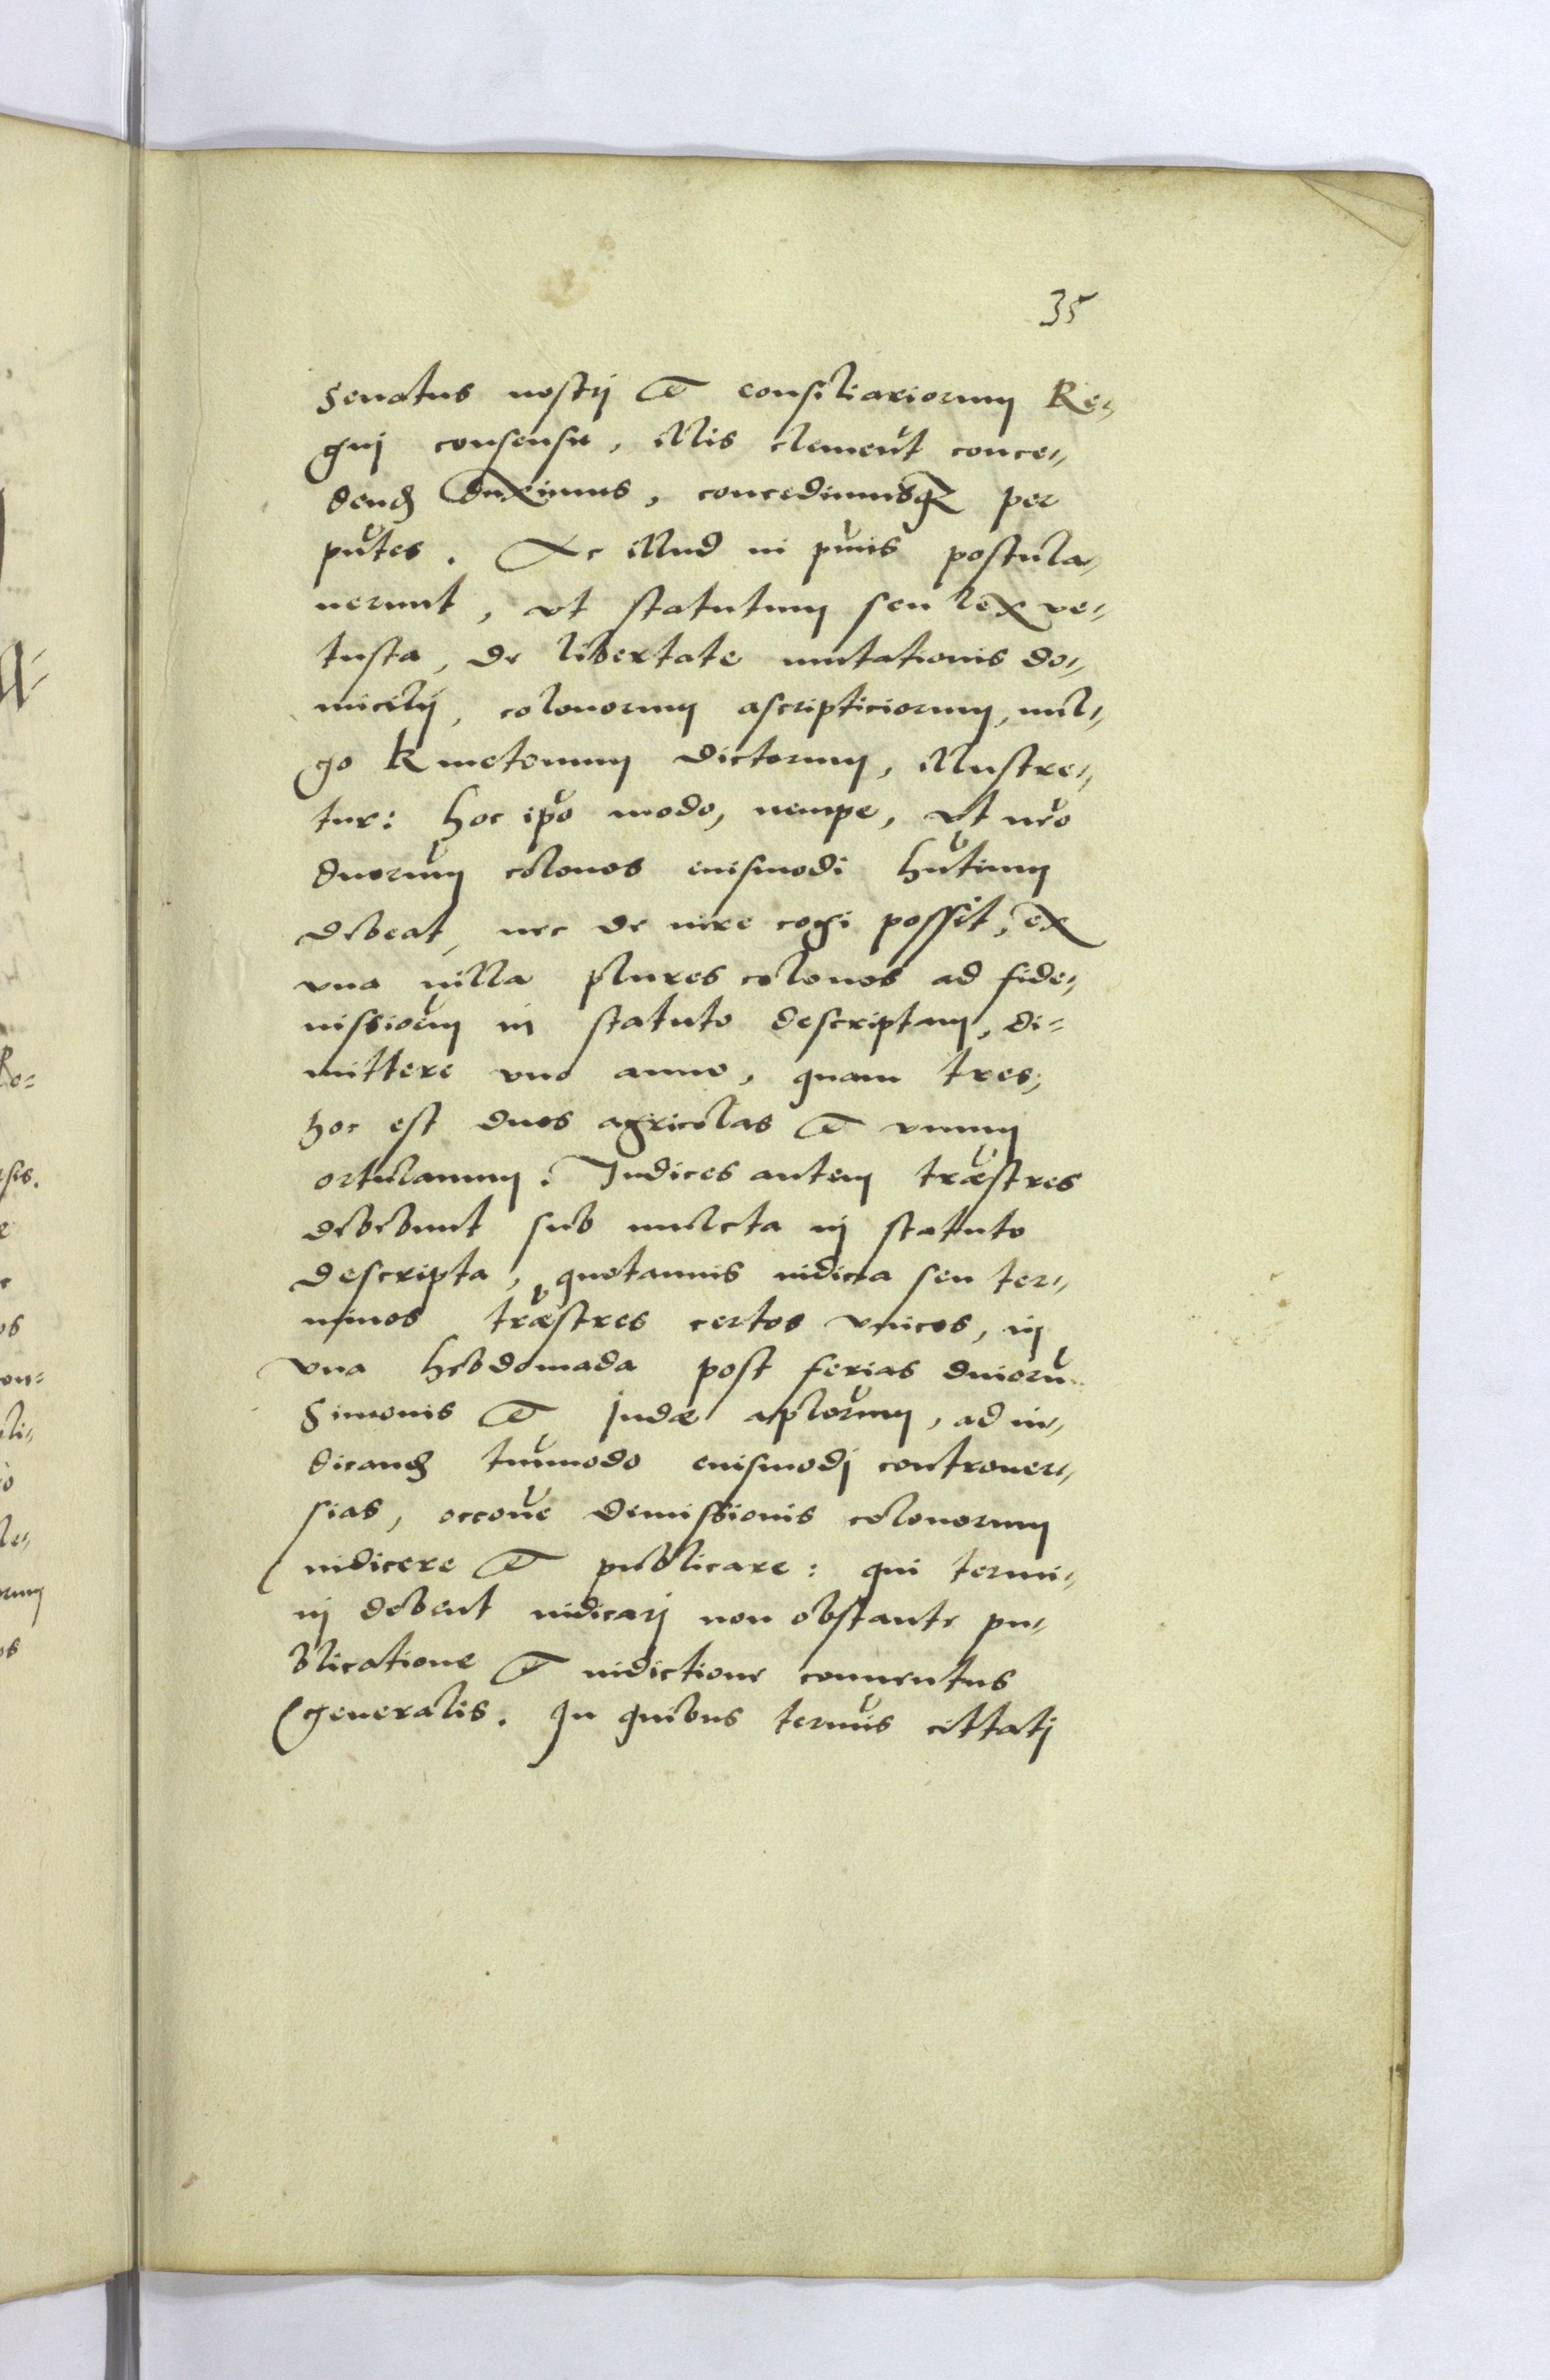 35
Senatus nostrj et consiliariorum Re¬
gnj consensu, illis clement conce¬
dend duximus, concedimusq per
putes. Ac illud in puis postula¬
uerunt, ut statutum seu lex ve¬
tusta, de libertate mutationis do¬
micilij, colonorum ascripticiorum, uul¬
go Kmetonum dictorum, illustre¬
tur: hoc ipo modo, nempe, ut uro
duorum colonos euismodi hutium
debeat, nec de iure cogi possit, ex
vna uilla plures colonos ad fide¬
iussioem in statuto descriptam, di=
mittere vno anno, quam tres,
hoc est duos agricolas et vnum
ortulanum. Judices autem træstres
debebunt sub mulcta in statuto
descripta, quotannis iudicia seu ter¬
minos træstres certos vnicos, in
vna hebdomada post ferias diuioru
Simonis et Judæ aplorum, ad iu¬
dicand tmmodo euismodj controuer¬
sias, occoue dimissionis colonorum
indicere et publicare: qui termi¬
nj debent iudicarj non obstante pu¬
blicatione et indictione conuentus
generalis. In quibus termis cittatj